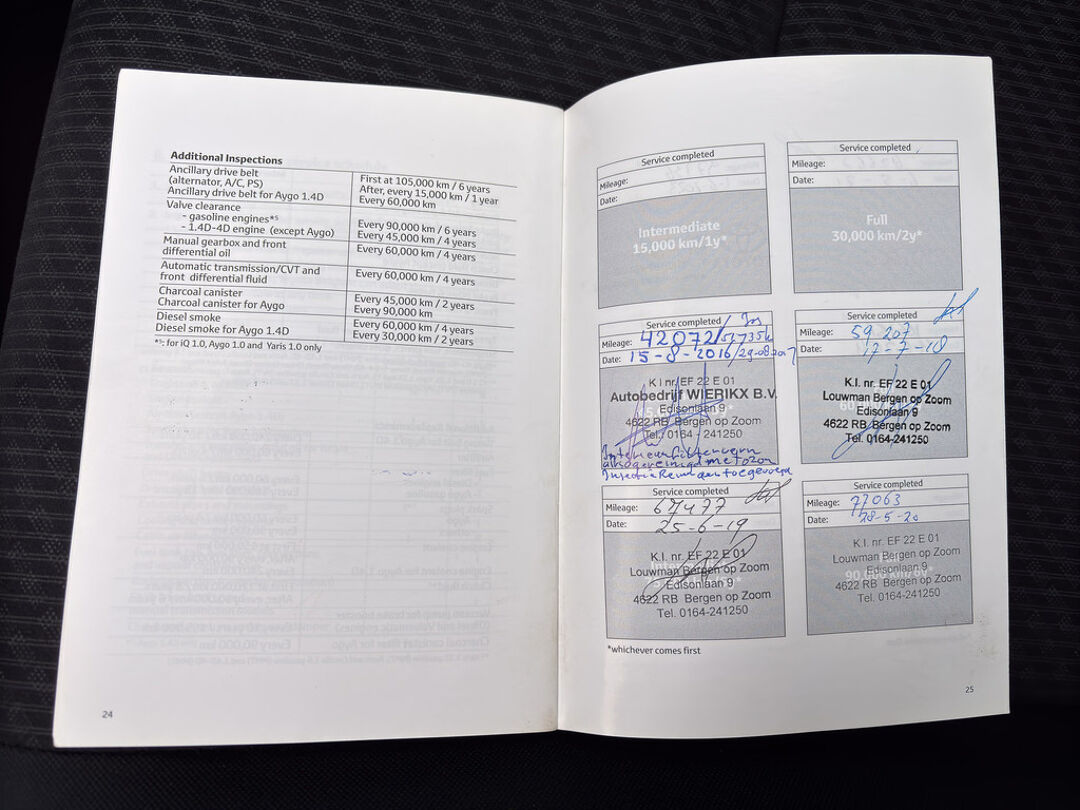 Additional Inspections
Ancillary drive belt
(alternator, A/C, PS)
First at 105,000 km / 6 years
After, every 15,000 km / 1 year
Ancillary drive belt for Aygo 1.4D
Every 60,000 km
Valve clearance
- gasoline engines*⁵
Every 90,000 km / 6 years
- 1.4D-4D engine (except Aygo)
Every 45,000 km / 4 years
Manual gearbox and front
differential oil
Every 60,000 km / 4 years
Automatic transmission/CVT and
front differential fluid
Every 60,000 km / 4 years
Charcoal canister
Every 45,000 km / 2 years
Charcoal canister for Aygo
Every 90,000 km
Diesel smoke
Every 60,000 km / 4 years
Diesel smoke for Aygo 1.4D
Every 30,000 km / 2 years
*⁵: for iQ 1.0, Aygo 1.0 and Yaris 1.0 only
24
Service completed
Mileage:
Date:
Intermediate
15,000 km/1y*
Service completed
Mileage:
Date:
Full
30,000 km/2y*
Service completed
Mileage: 42072/51735k
Date: 15-8-2016/29-08-2017
K I nr. EF 22 E 01
Autobedrijf WIERIKX B.V.
Edisonlaan 9
4622 RB Bergen op Zoom
Tel. 0164 - 241250
Service completed
Mileage: 59 207
Date: 17-7-18
K.I. nr. EF 22 E 01
Louwman Bergen op Zoom
Edisonlaan 9
4622 RB Bergen op Zoom
Tel. 0164-241250
Service completed
Mileage: 67477
Date: 25-6-19
K.I. nr. EF 22 E 01
Louwman Bergen op Zoom
Edisonlaan 9
4622 RB Bergen op Zoom
Tel. 0164-241250
Service completed
Mileage: 77063
Date: 28-5-20
K.I. nr. EF 22 E 01
Louwman Bergen op Zoom
Edisonlaan 9
4622 RB Bergen op Zoom
Tel. 0164-241250
*whichever comes first
25